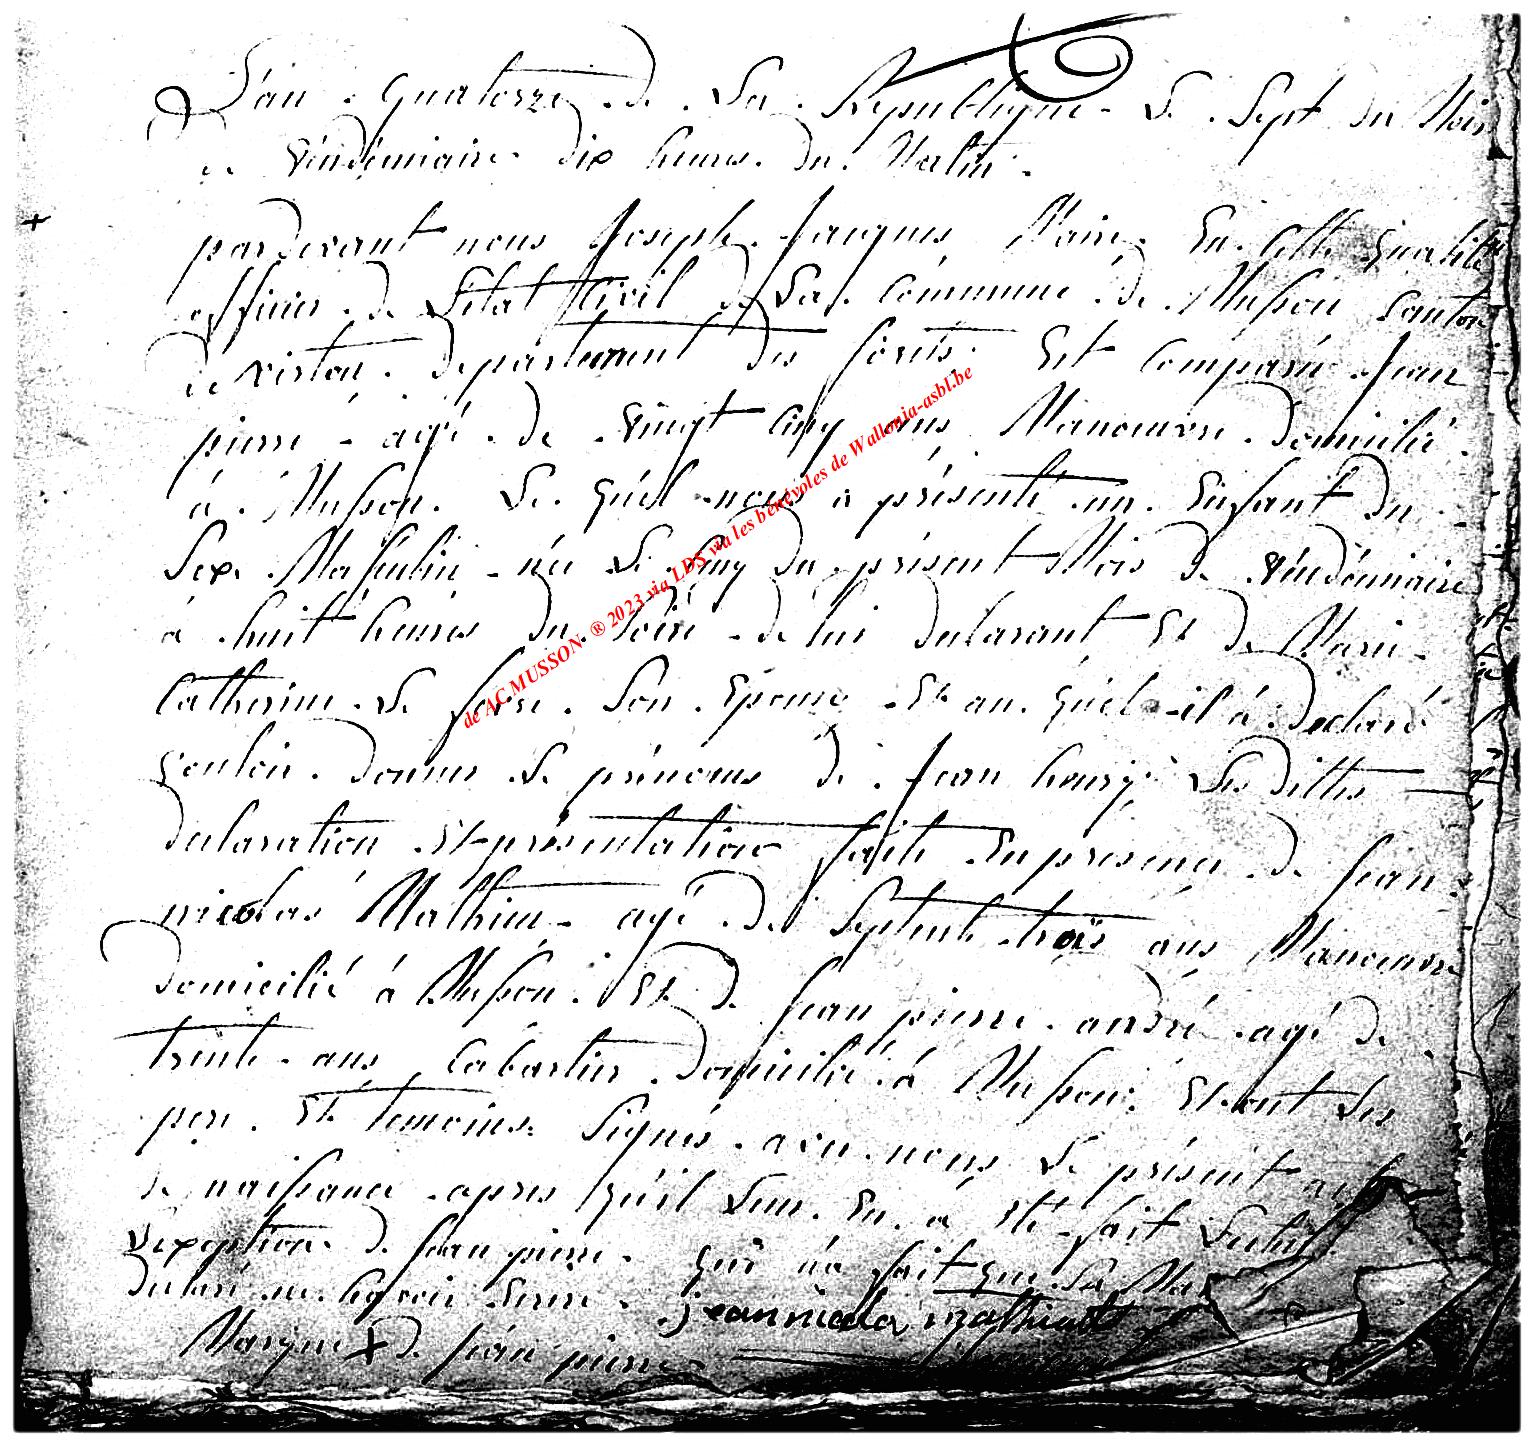 L'an quatorze de La Republique Le Sept du Mois
de véndémiaire dix heures du Matin.
pardevant nous Joseph Jacques Maire En Cette Qualité
officier de L'état Civil de La Commune de Musson Canton
de virton departement des forêts. Est Comparu Jean
pierre agé de vingt Cinq áns Manoeuvre domicilié
à Musson. Le Quél nous a présenté un Enfant du
Sexe Masculin née Le Cinq du présent Mois de véndémiaire
à huit heures du Soire de lui declarant Et de Marie
Catherine Le fevre Son Epouse Et au Quél il á declaré
vouloir donner Le prénoms de Jean henry Les dittes
declaration Et présentation faite En presence de Jean
nicolas Mathieu agé de Septente trois ans Manoeuvre
domicilié à Musson. Et de Jean pierre andré agé de
trente ans Cabartier domicilié à Musson. Et ont Les
pere Et temoins Signés avec nous Le présent acte
de naissance apres Qu'il Leur En á été fait Lecture
L'exception de Jean pierre Qui n'a fait que Sa Mar
declaré ne Scavoir Ecrire
jean nicola mathieu
Marque X de Jean pierre
de AC MUSSON ® 2023 via LDS via les bénévoles de Wallonia-asbl.be